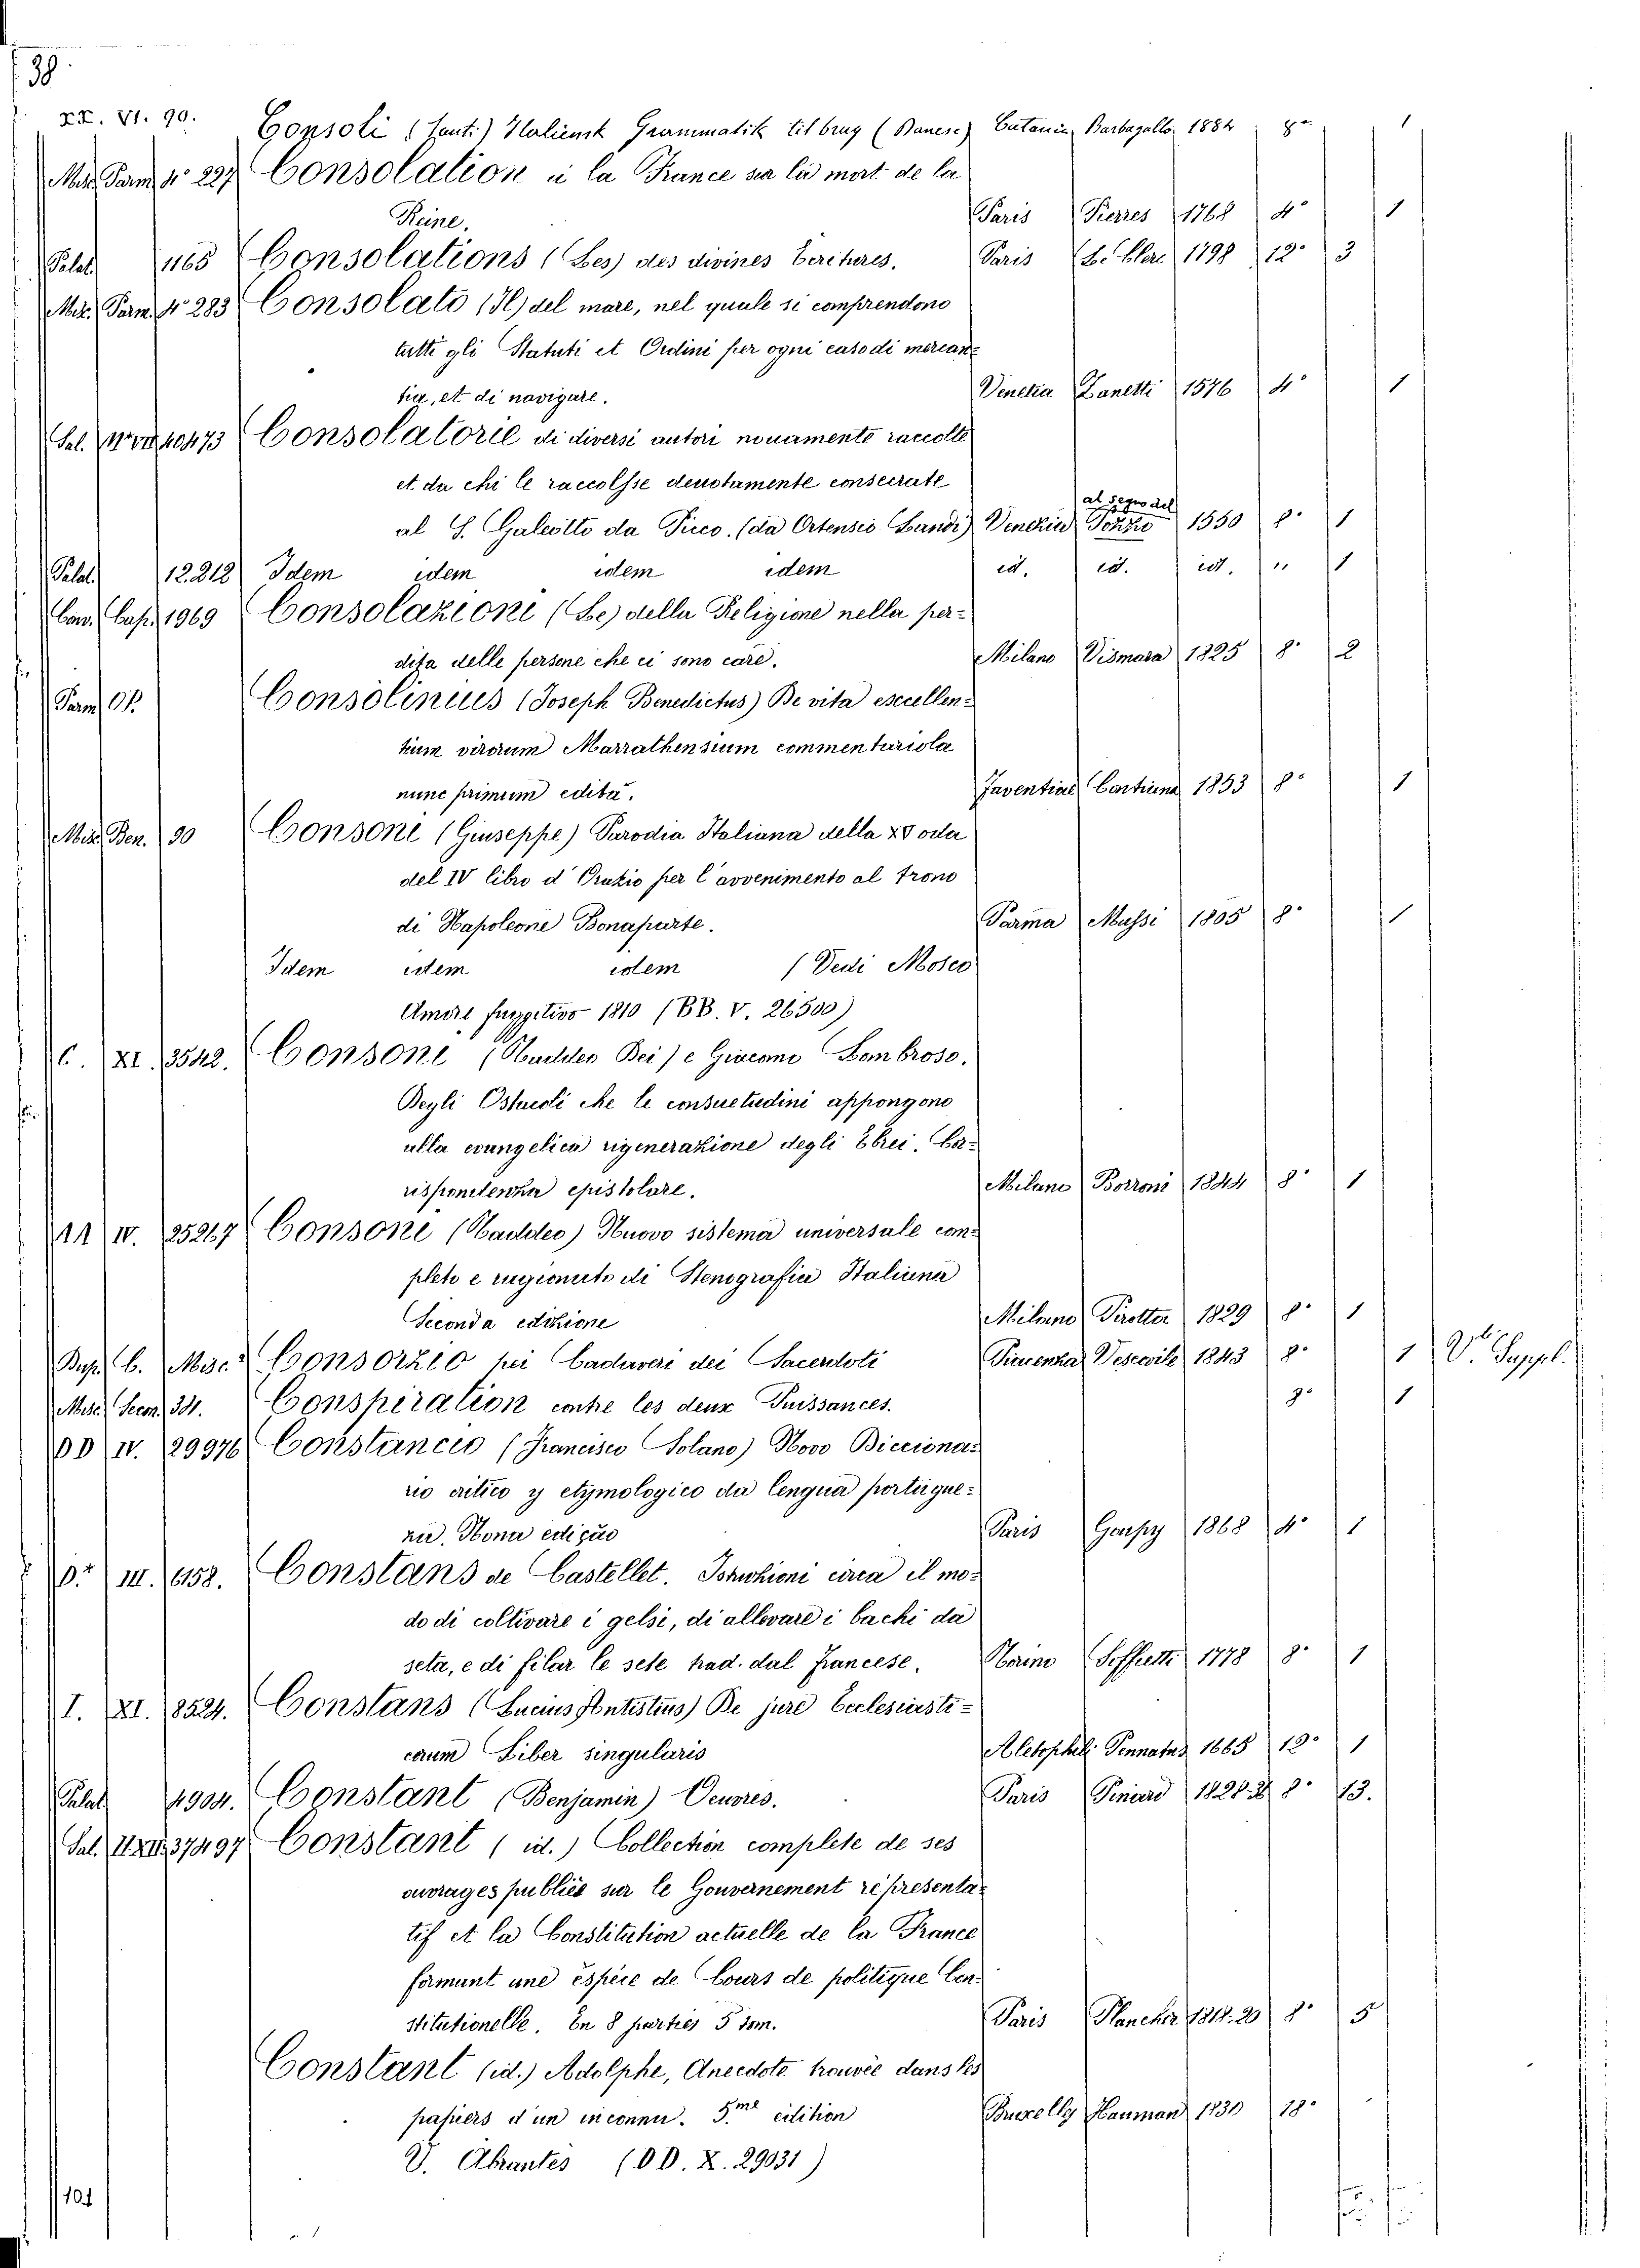 38
XX. VI. 90. Consoli (Santi) Italiensk Grammatik til brug (Danese) Catania Barbagallo 1884 8° 1
Misc. Parm. 4° 227 Consolation à la France sur la mort de la
Reine. Paris Pierres 1768 4° 1
Palat. 1165 Consolations (Les) des divines Ecretures. Paris Le Clere 1798 12° 3
Misc. Parm. 4° 283 Consolato (Il) del mare, nel quale si comprendono
tutti gli Statuti et Ordini per ogni caso di mercan=
tia, et di navigare. Venetia Zanetti 1576 4° 1
Sal. 10473 Consolatorie di diversi autori nouamente raccolte
et da chi le raccolsse deuotamente consecrate
al S. Galeotto da Pico. (da Ortensio Landi) Venezia al segno del Pozzo 1550 8° 1
Palat. 12.212 Idem idem idem idem id. id. id. " 1
Cam. Cap. 1969 Consolazioni (Le) della Religione nella per=
dita delle persone che ci sono care. Milano Vismara 1825 8° 2
Parm. Op. Consolinius (Joseph Benedictus) De vita escellen=
tium virorum Marrathensium commentariola
nunc primum edita. Faventiae Contiana 1853 8° 1
Misc. Ben. 90 Consoni (Giuseppe) Parodia Italiana della XV oda
del IV libro d'Orazio per l'avvenimento al trono
di Napoleone Bonaparte. Parma Mussi 1805 8° 1
Idem idem idem (Vedi Mosco
Amore fuggitivo 1810 (BB. V. 26500)
C. XI. 3542. Consoni (Taddeo Dei) e Giacomo Lombroso.
Degli Ostacoli che le consuetudini appongono
alla evangelica rigenerazione degli Ebrei. Co=
rispondenza epistolare. Milano Borroni 1844 8° 1
AA IV. 25267 Consoni (Taddeo) Nuovo sistema universale com=
pleto e ragionato di Stenografia Italiana
Seconda edizione Milano Pirotta 1829 8° 1
Bap. C. Misc. Consorzio pei Cadaveri dei Sacerdoti Piacenza Vescovile 1843 8° 1 V. Suppl.
Misc. Secon. 34. Conspiration contre les deux Puissances. 8° 1
DD IV. 29976 Constancio (Francisco Solano) Novo Diccionar=
rio critico y etymologico da lengua portugue=
za. Nona edição Paris Garspy 1868 4° 1
O.* III. 6158. Constans de Castellet. Istruzioni circa il mo=
do di coltivare i gelsi, di allevare i bachi da
seta, e di filar le sete trad. dal francese. Torino Soffietti 1778 8° 1
I. XI. 8524. Constans (Lucius Antistius) De jure Ecclesiasti=
corum Liber singularis Aletophili Pennatus 1665 12° 1
Palat. 4904. Constant (Benjamin) Oeuvres. Paris Pinard 8° 13.
Sal. 37497 Constant (id.) Collection complete de ses
ouvrages publiés sur le Gouvernement représenta=
tif et la Constitution actuelle de la France
formant une espèce de Cours de politique Con=
stitutionelle. En 8 parties 5 tom. Paris Plancher 1818.20 8° 5
Constant (id.) Adolphe, Anecdote trouvée dans les
papiers d'un inconnu. 5.me edition Bruxelles Hauman 1830 18°
V. Abrantes (DD. X. 29031)
101